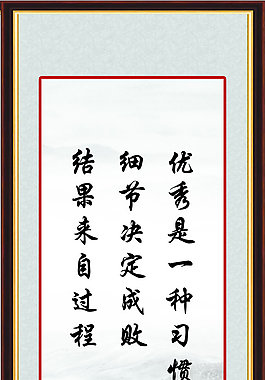 优秀是一种习惯
细节决定成败
结果来自过程